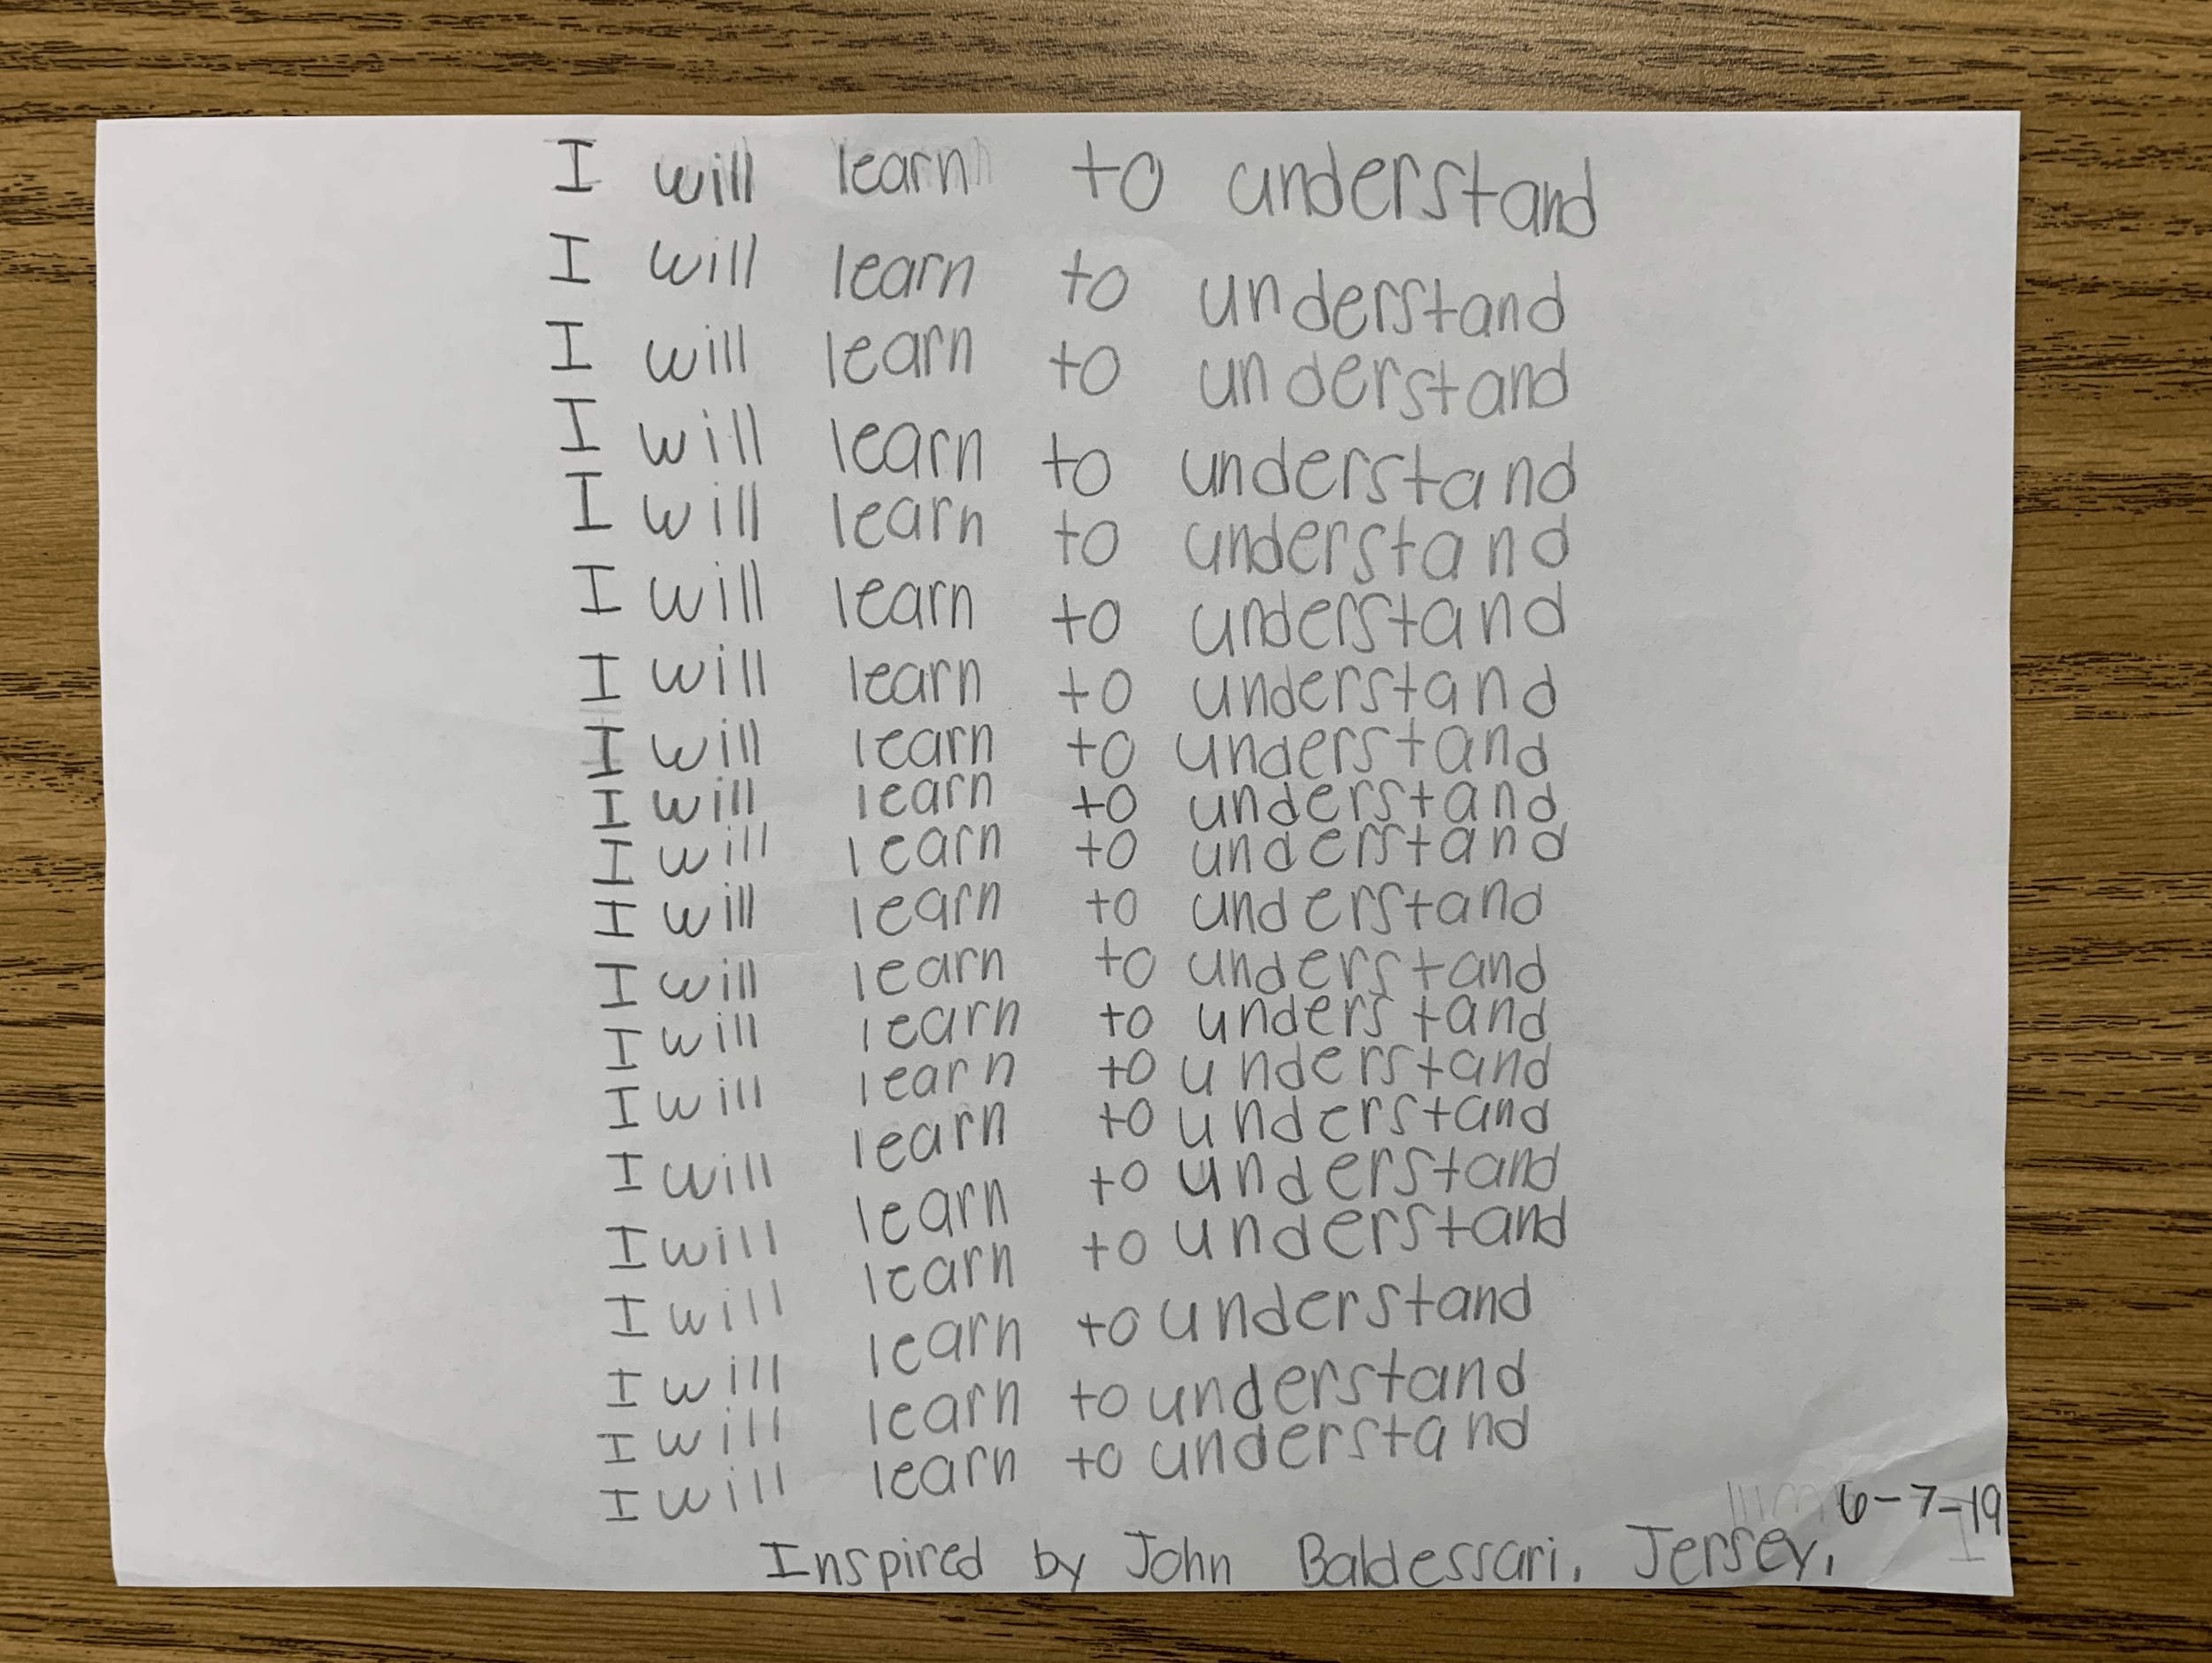 I will learn to understand
I will learn to understand
I will learn to understand
I will learn to understand
I will learn to understand
I will learn to understand
I will learn to understand
I will learn to understand
I will learn to understand
I will learn to understand
I will learn to understand
I will learn to understand
I will learn to understand
I will learn to understand
I will learn to understand
I will learn to understand
I will learn to understand
I will learn to understand
I will learn to understand
I will learn to understand
6-7-19
Inspired by John Baldessari. Jersey.